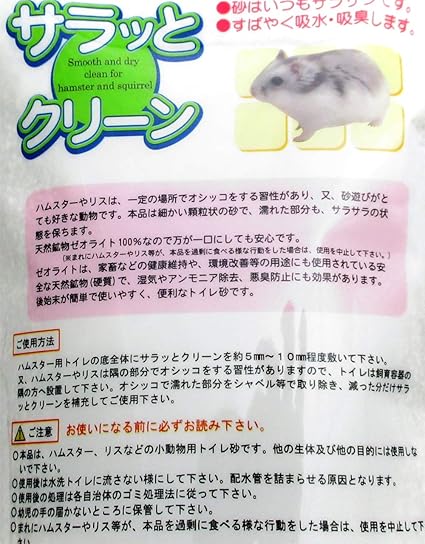 ●砂はいつもサラサラです。
●すばやく吸水・吸臭します。
サラッと
Smooth and dry
clean for
hamster and squirrel
クリーン
ハムスターやリスは、一定の場所でオシッコをする習性があり、又、砂遊びがと
ても好きな動物です。本品は細かい顆粒状の砂で、濡れた部分も、サラサラの状
態を保ちます。
天然鉱物ゼオライト100%なので万が一口にしても安心です。
(※まれにハムスターやリス等が、本品を過剰に食べる様な行動をした場合は、使用を中止して下さい。)
ゼオライトは、家畜などの健康維持や、環境改善等の用途にも使用されている安
全な天然鉱物(硬質)で、湿気やアンモニア除去、悪臭防止にも効果があります。
後始末が簡単で使いやすく、便利なトイレ砂です。
ご使用方法
ハムスター用トイレの底全体にサラッとクリーンを約5mm〜10mm程度敷いて下さい。
又、ハムスターやリスは隅の部分でオシッコをする習性がありますので、トイレは飼育容器の
隅の方へ設置して下さい。オシッコで濡れた部分をシャベル等で取り除き、減った分だけサラ
ッとクリーンを補充してご使用下さい。
⚠ご注意 お使いになる前に必ずお読み下さい。
○本品は、ハムスター、リスなどの小動物用トイレ砂です。他の生体及び他の目的には使用しな
いで下さい。
○使用後は水洗トイレに流さない様にして下さい。配水管を詰まらせる原因となります。
○使用後の処理は各自治体のゴミ処理法に従って下さい。
○幼児の手の届かないところに保管して下さい。
○まれにハムスターやリス等が、本品を過剰に食べる様な行動をした場合は、使用を中止して下
さい。